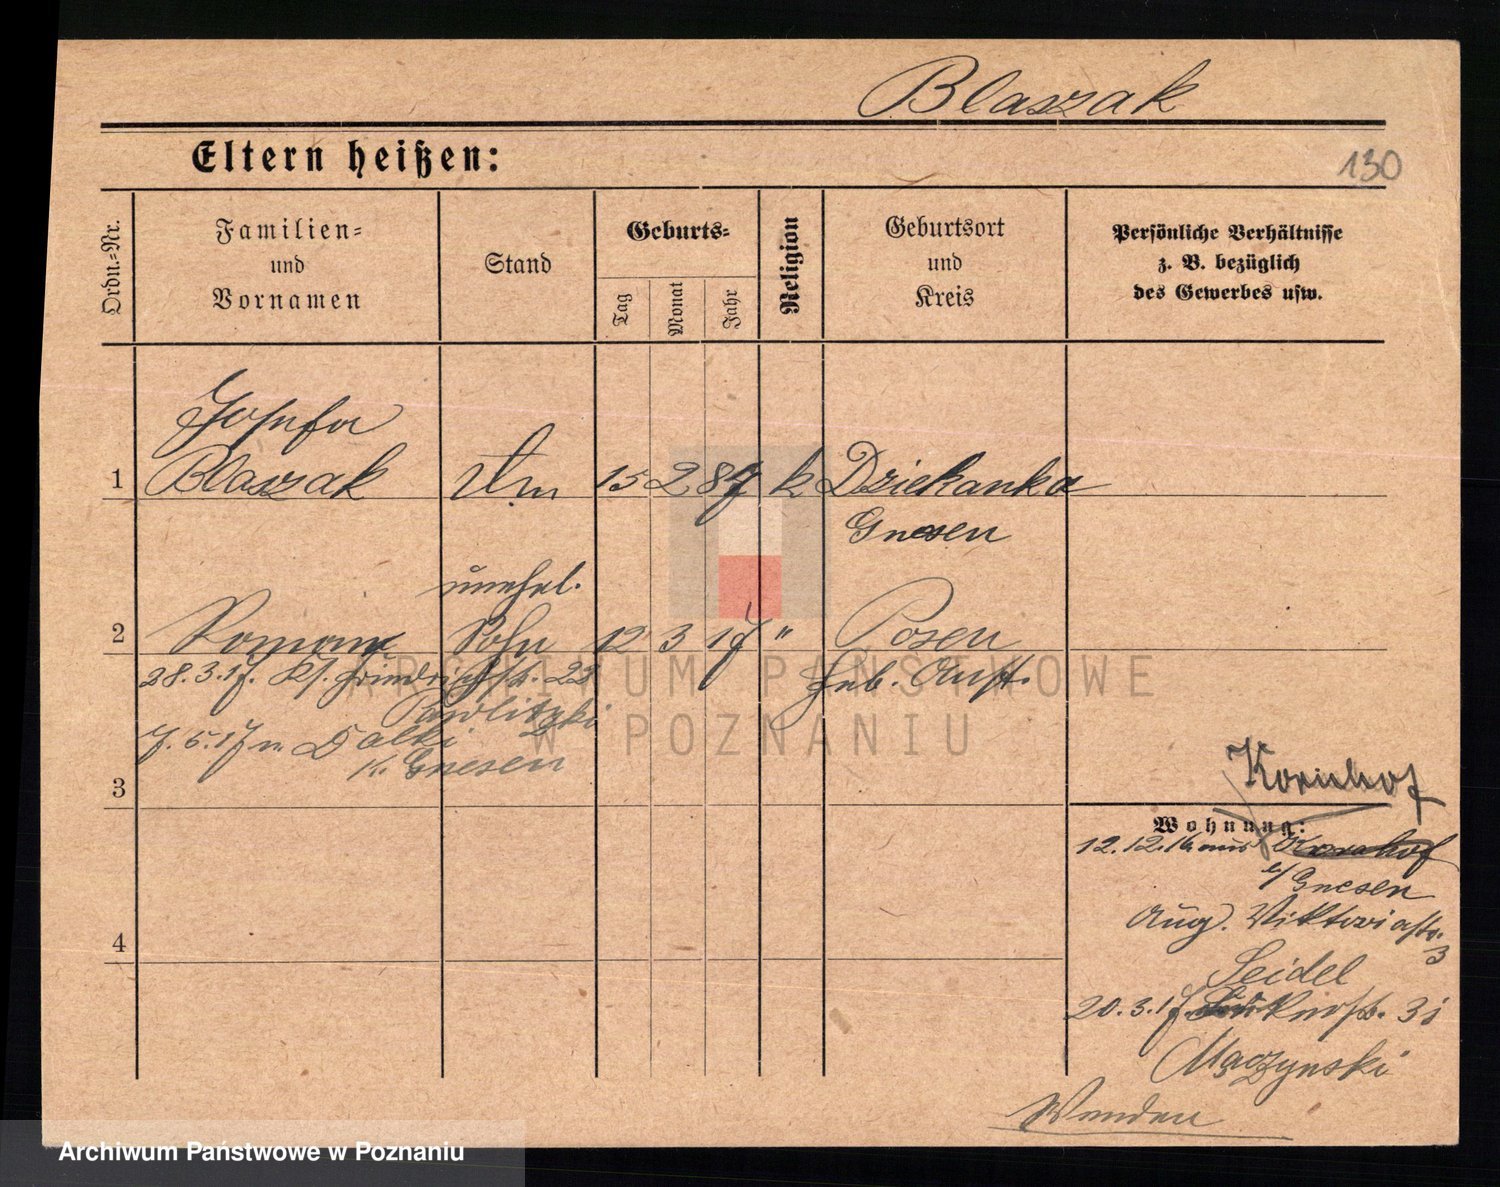 Blaszak
Eltern heißen:
130
Ordn.-Nr.
Familien-
und
Vornamen
Stand
Geburts-
Tag
Monat
Jahr
Religion
Geburtsort
und
Kreis
Persönliche Verhältnisse
z. B. bezüglich
des Gewerbes usw.
Josefa
1 Blaszak 15 2 87 k Dziekanka
Gnesen
unehel.
2 Roman Sohn 12 3 17 " Posen
28.3.17. Kl. 22 Heb. Anst.
Pawlitzki
7.5.17 n. Dalki
K. Gnesen
3
Kornhof
Wohnung:
12.12.16 aus Kornhof
b/Gnesen
Aug. Viktoriastr.
3
4
Seidel
20.3.17. 31
Mączynski
Wenden
ARCHIWUM PAŃSTWOWE
W POZNANIU
Archiwum Państwowe w Poznaniu